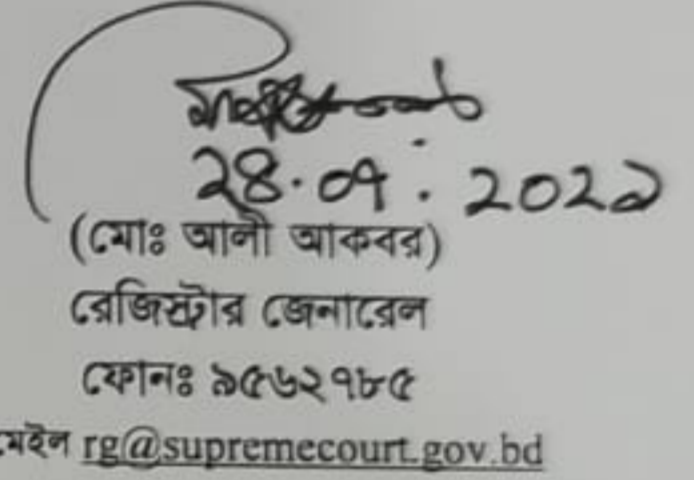 ২৪.০৭.২০২১
(মোঃ আলী আকবর)
রেজিস্ট্রার জেনারেল
ফোনঃ ৯৫৬২৭৮৫
মেইল rg@supremecourt.gov.bd